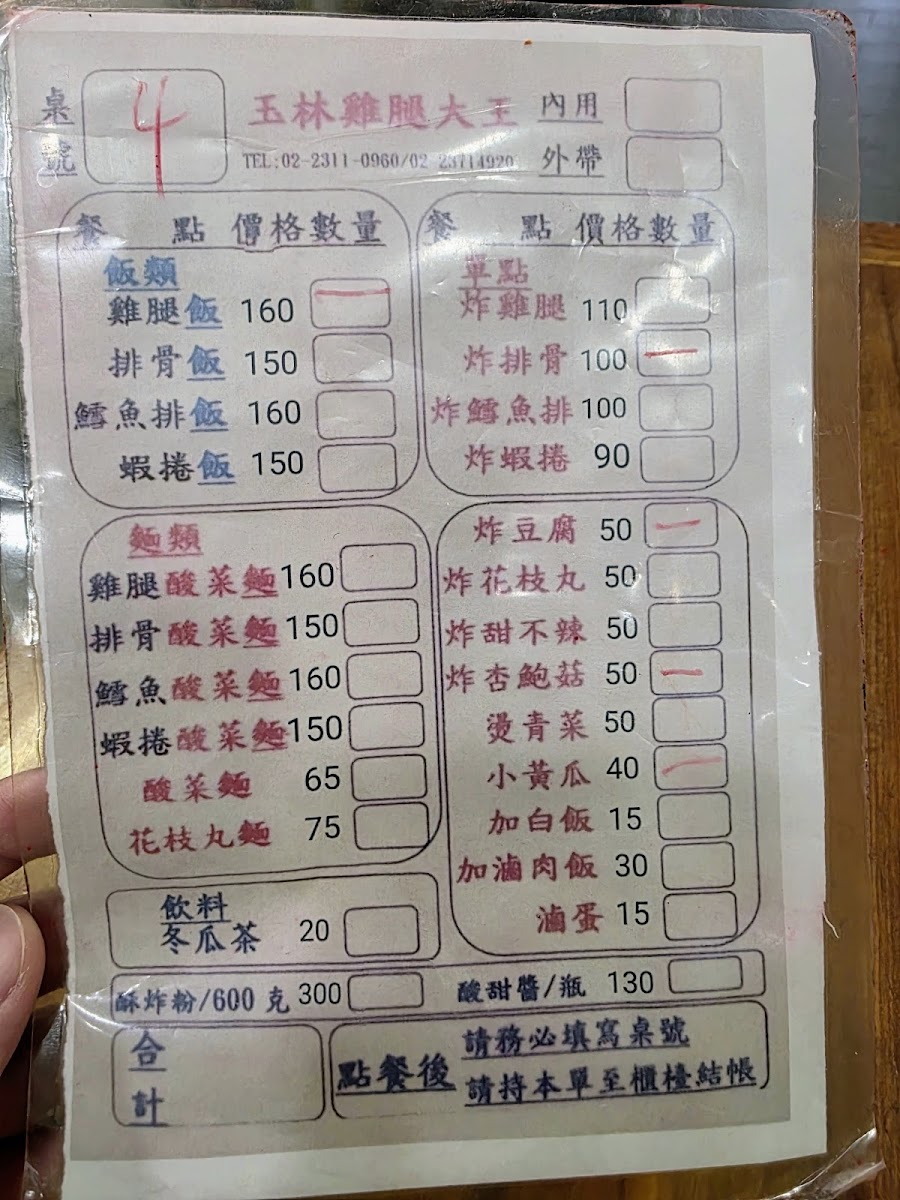 桌號 4
玉林雞腿大王
TEL:02-2311-0960/02 23714920
內用
外帶
餐點 價格 數量
飯類
雞腿飯 160 一
排骨飯 150
鱈魚排飯 160
蝦捲飯 150
麵類
雞腿酸菜麵 160
排骨酸菜麵 150
鱈魚酸菜麵 160
蝦捲酸菜麵 150
酸菜麵 65
花枝丸麵 75
飲料
冬瓜茶 20
餐點 價格 數量
單點
炸雞腿 110
炸排骨 100 一
炸鱈魚排 100
炸蝦捲 90
炸豆腐 50 一
炸花枝丸 50
炸甜不辣 50
炸杏鮑菇 50 一
燙青菜 50
小黃瓜 40 一
加白飯 15
加滷肉飯 30
滷蛋 15
酥炸粉/600 克 300
酸甜醬/瓶 130
合計
點餐後
請務必填寫桌號
請持本單至櫃檯結帳